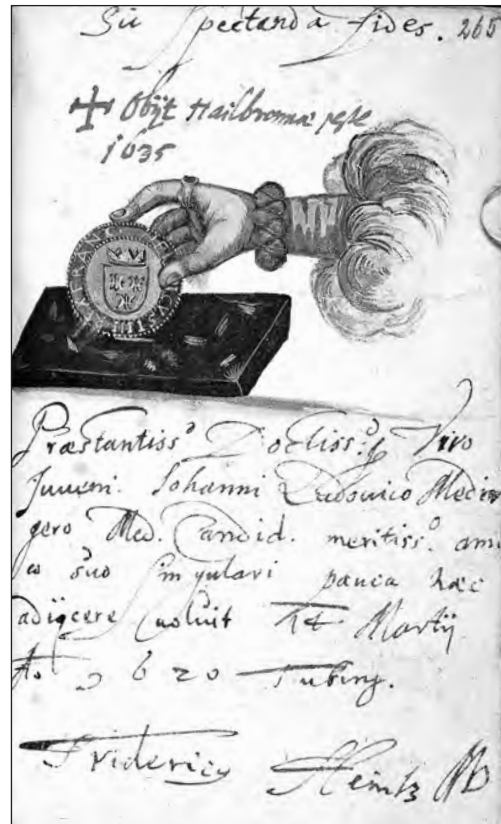 Sic Spectanda fides. 265
Obijt Hailbronnæ peste
1635
Præstantiss.º Doctiss.º q Viro
Juveni. Johanni Ludovico Medin
gero Med. Candid. meritiss.º ami
co suo singulari pauca hæc
adijcere voluit 14 Martij
Aº 1620 Tubing.
Fridericus Heintz MD